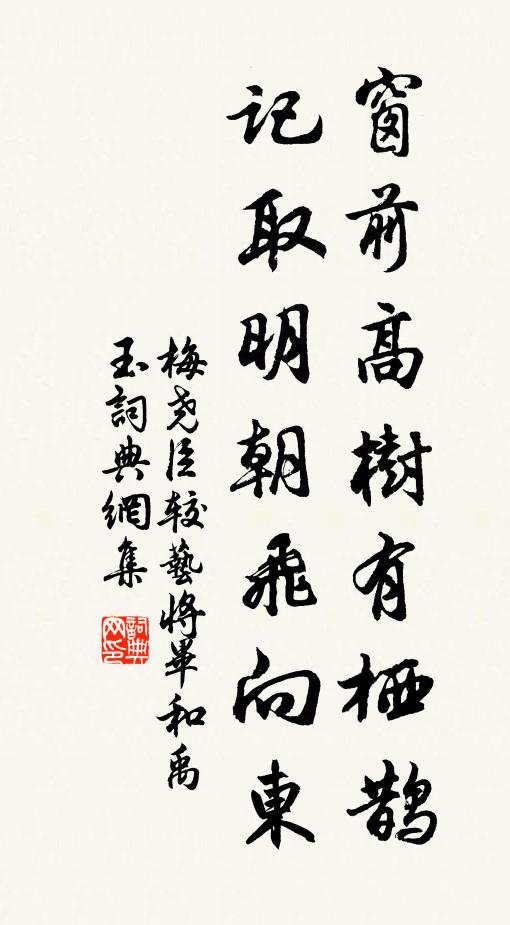 窗前高樹有栖鵲
記取明朝飛向東
梅尧臣较藝將畢和禹
玉詞典網集
詞典
网印